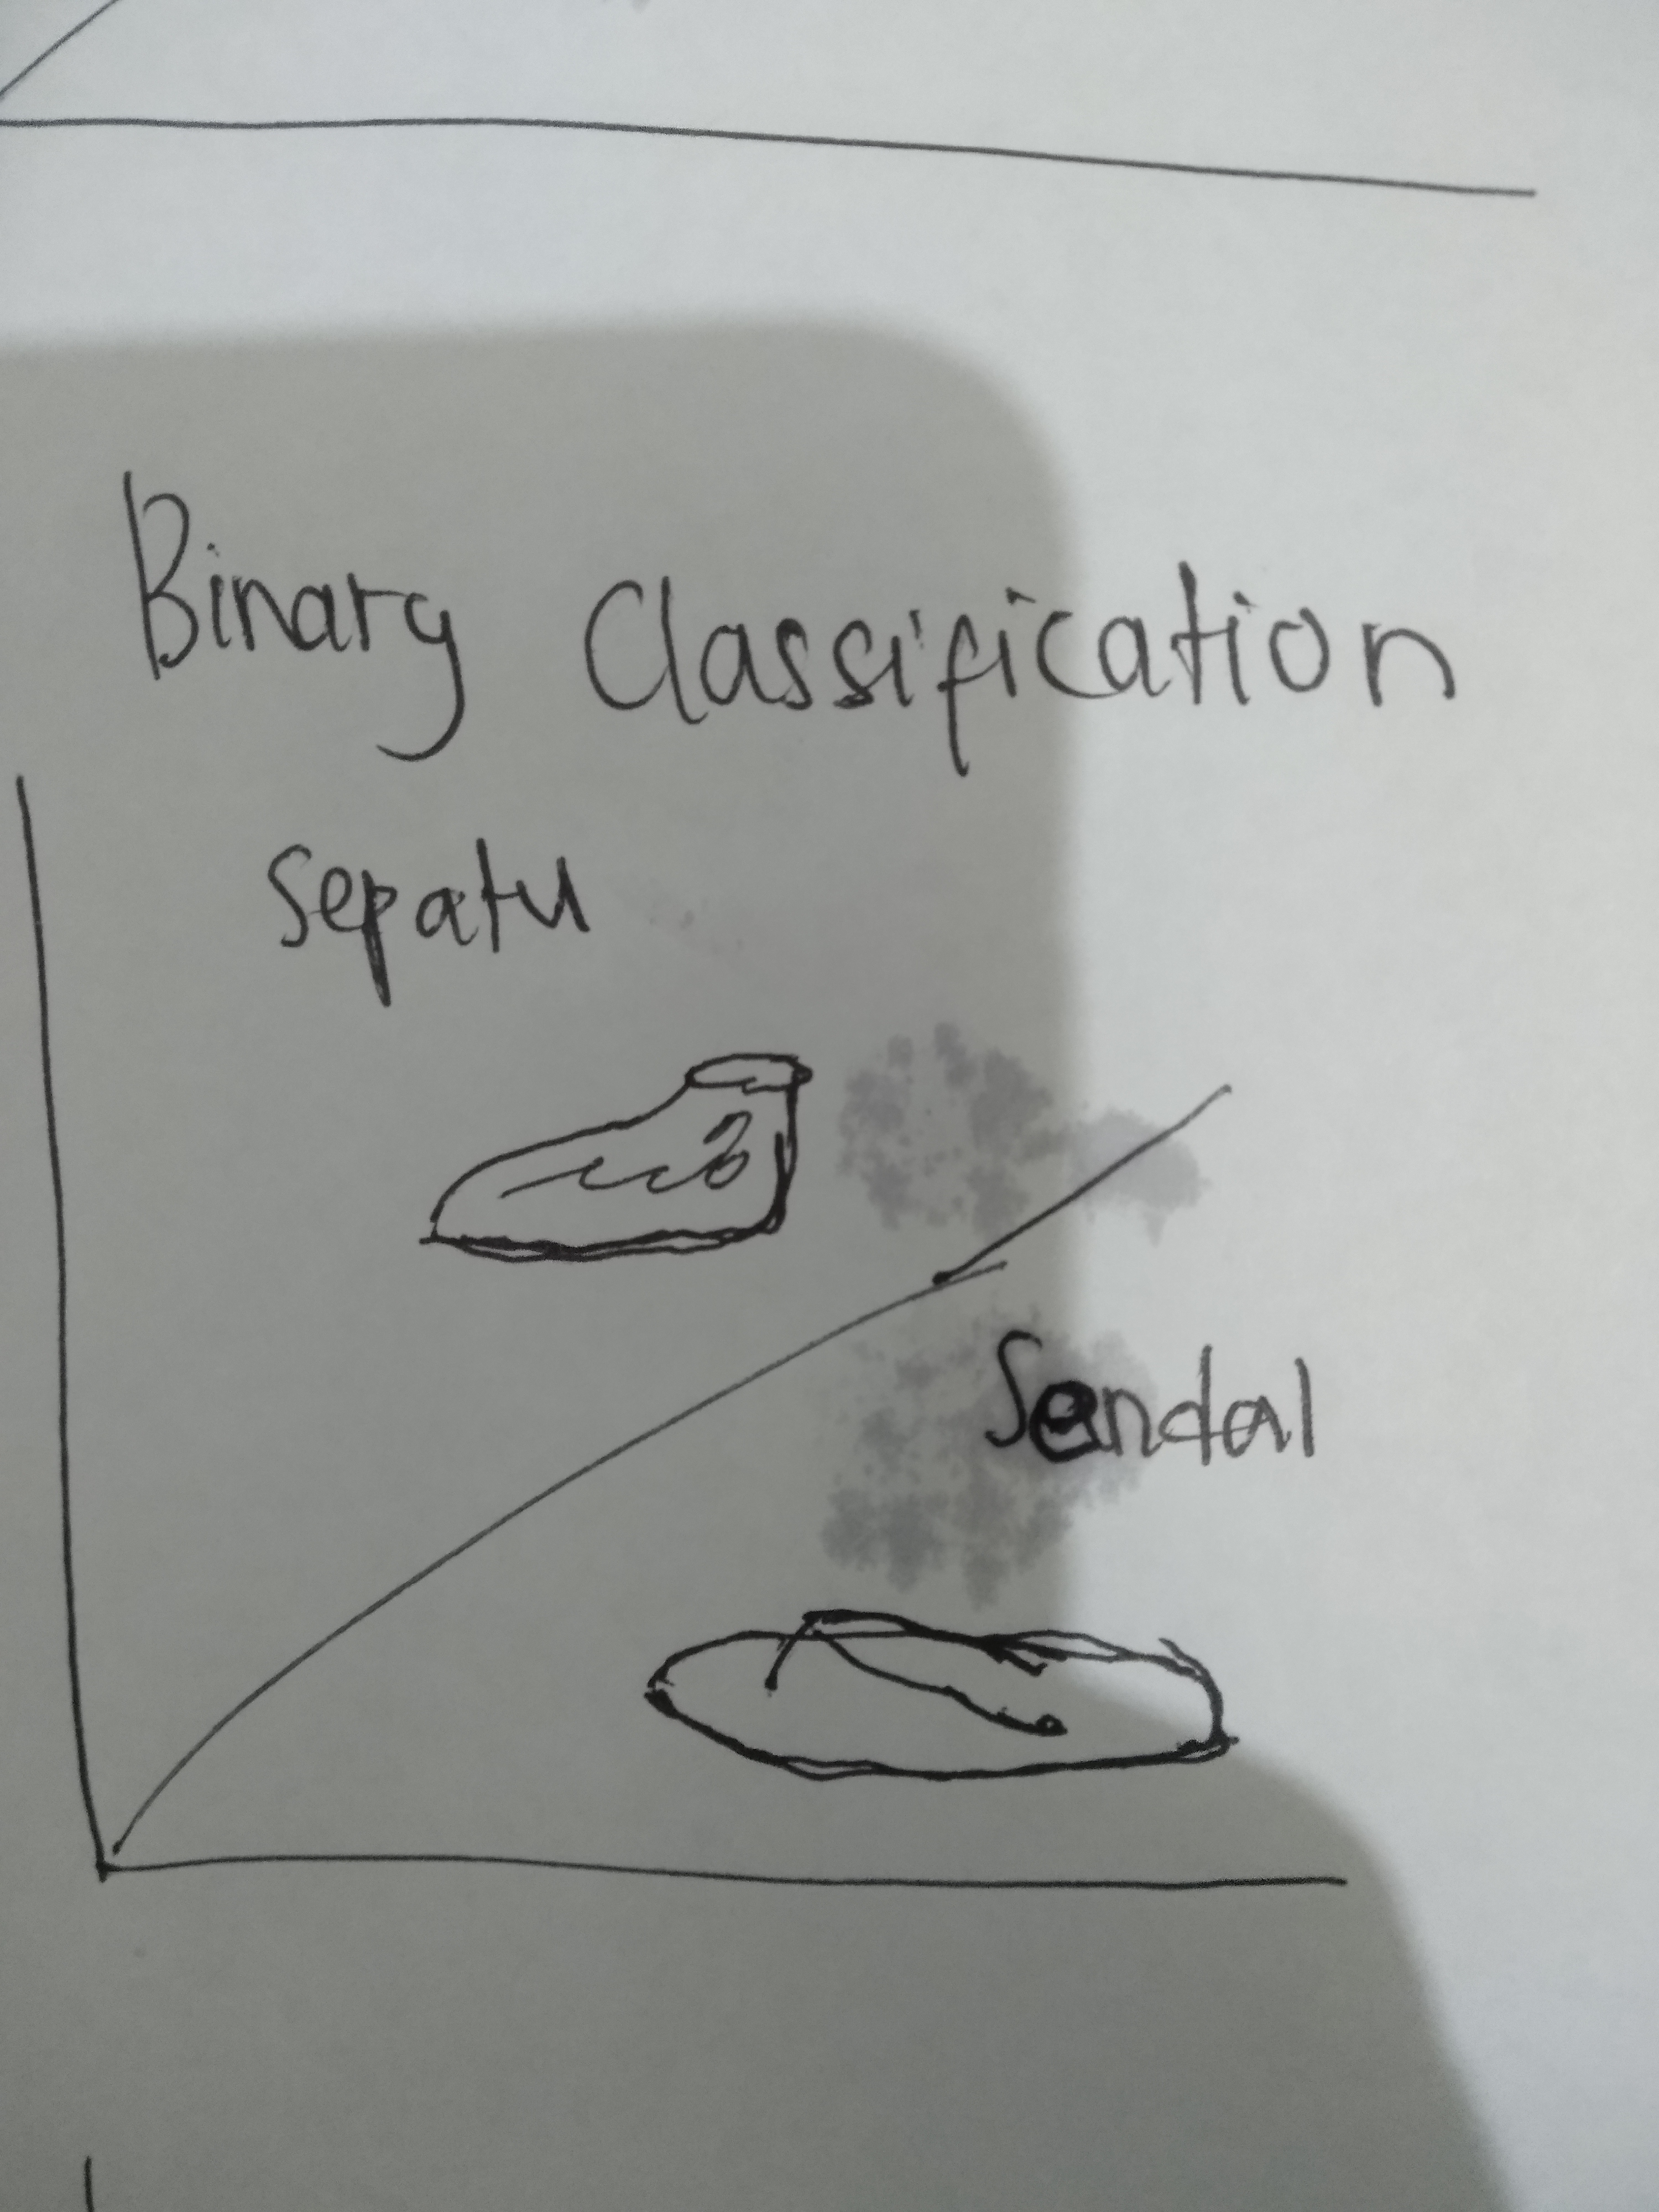 Binary Classification
Sepatu
Sendal